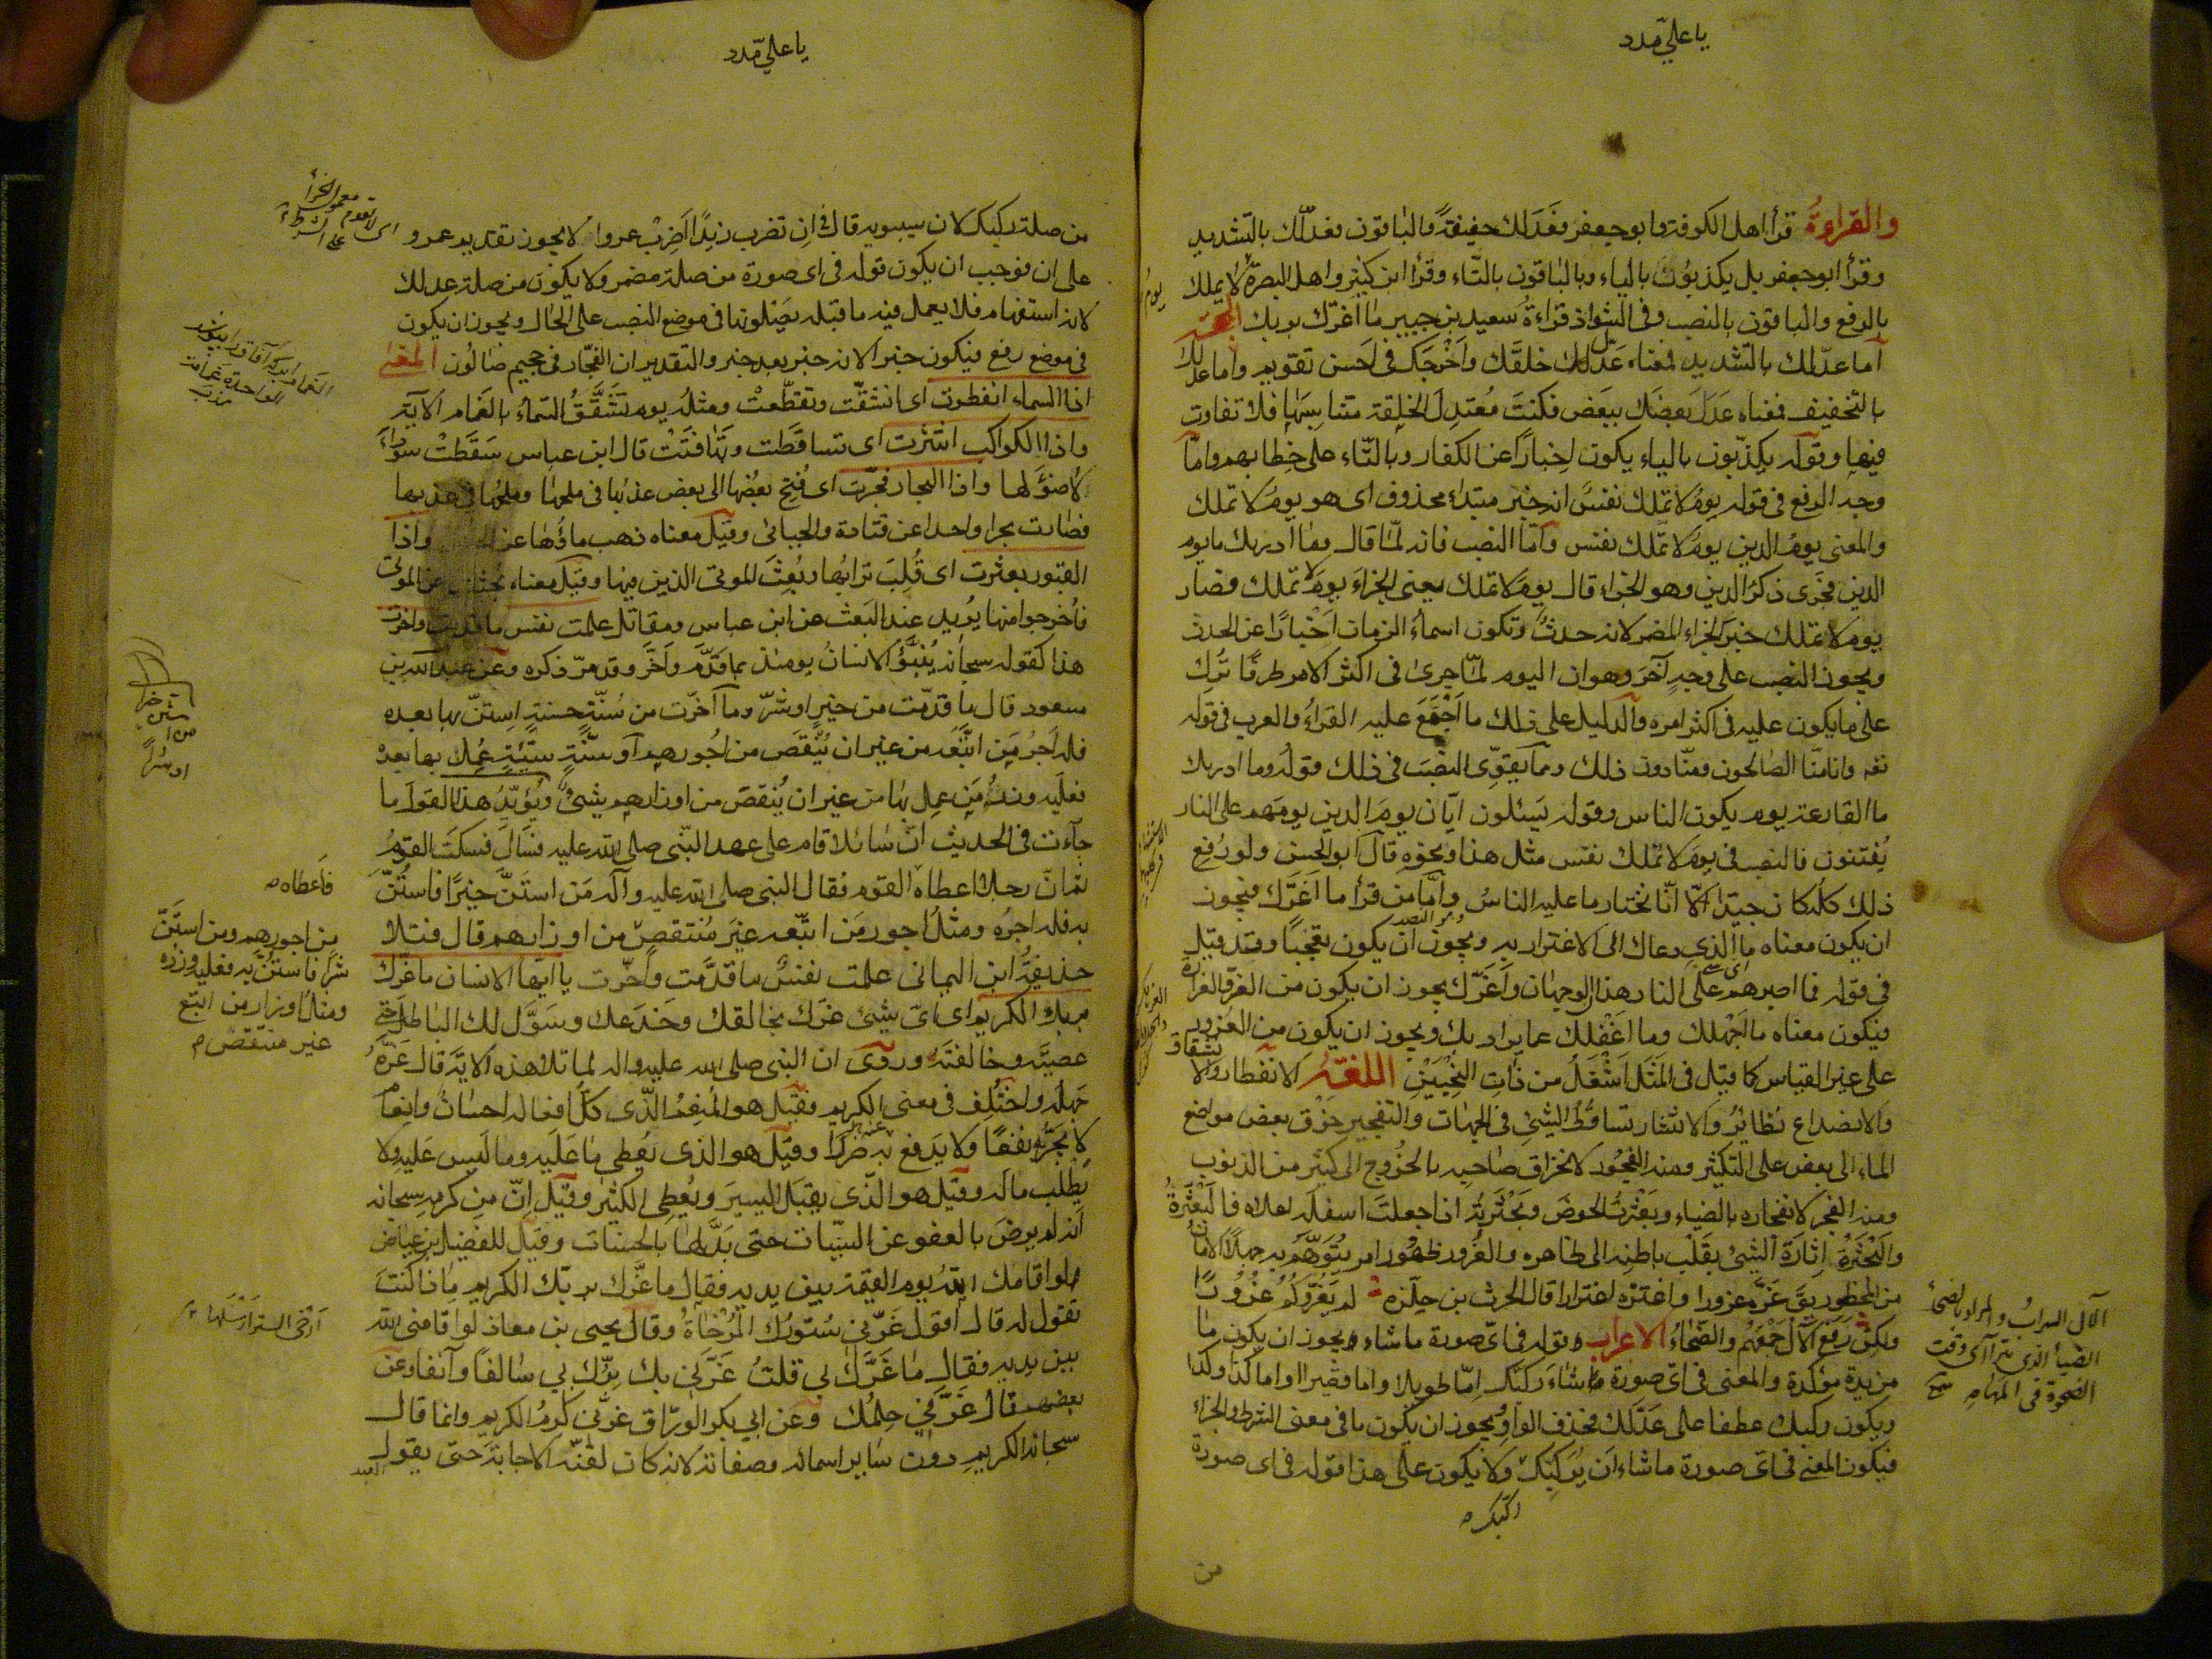 يا علي مدد
والقراءة قرأ اهل الكوفة وابو جعفر فعدلك خفيفة والباقون فعدّلك بالتشديد
وقرأ ابو جعفر بل يكذبون بالياء والباقون بالتاء وقرأ ابن كثير واهل البصرة يوم لا تملك
بالرفع والباقون بالنصب وفى الشواذ قراءة سعيد بن جبير ما اغرّك بربك الحجة
اما عدّلك بالتشديد فمعناه عدّل خلقك واخرجك فى احسن تقويم واما عدلك
بالتخفيف فمعناه عدل بعضك ببعض فكنت معتدل الخلقة متناسبها فلا تفاوت
فيها وقوله يكذّبون بالياء يكون اخبارا عن الكفار وبالتاء على خطابهم واما
وجه الرفع فى قوله يوم لا تملك نفس انه خبر مبتداء محذوف اى هو يوم لا تملك
والمعنى يوم الدين يوم لا تملك نفس واما النصب فانه لمّا قال وما ادريك ما يوم
الدين فجرى ذكر الدين وهو الجزاء قال يوم لا تملك يعنى الجزاء يوم لا تملك فصار
يوم لا تملك خبر الجزاء المضمر لانه حدث وتكون اسماء الزمان اخبارا عن الحدث
ويجوز النصب على وجه آخر وهو ان اليوم لمّا جرى فى اكثر الامر ظرفا تُرك
على ما يكون عليه فى اكثر امره والدليل على ذلك ما اجمع عليه القراء والعرب فى قوله
تعه وانا منّا الصالحون ومنّا دون ذلك ومما يقوّى النصب فى ذلك قوله وما ادريك
ما القارعة يوم يكون الناس وقوله يسئلون ايّان يوم الدين يوم هم على النار
يُفتنون فالنصب فى يوم لا تملك نفس مثل هذا ونحوه قال ابو الحسن ولو رُفع
ذلك كله كان جيّدا الّا انّا نختار ما عليه الناس وامّا من قرأ ما اغرّك فيجوز
ان يكون معناه ما الذى دعاك الى الاغترار به ويجوز ان يكون تعجبا وقد قيل
فى قوله فما اصبرهم على النار هذان الوجهان واغرّك يجوز ان يكون من الغرّ والغرارة
فيكون معناه ما اجهلك وما اغفلك عما يراد بك ويجوز ان يكون من الغرور
على غير القياس كما قيل فى المثل اشغل من ذات النحيين اللغة الانفطار والانشقاق
والانصداع نظائر والانتثار تساقط الشئ فى الجهات والتفجير خرق بعض مواضع
الماء الى بعض على التكثير ومنه الفجور لانخراق صاحبه بالخروج الى كثير من الذنوب
ومنه الفجر لانفجاره بالضياء وبعثرت الحوض وبحثرته اذا جعلت اسفله اعلاه فالبعثرة
والبحثرة اثارة الشئ بقلب باطنه الى ظاهره والغرور ظهور امر يتوهّم به جهلا الامان
من المحظور يق غرّه غرورا واغترّه اغترارا قال الحرث بن حلّزه لم يغرّوكم غرورا
ولكن رفع الآل جمعهم والضحاءُ الاعراب قوله فى اىّ صورة ما شاء يجوز ان يكون ما
مزيدة مؤكدة والمعنى فى اىّ صورة شاء ركّبك امّا طويلا واما قصيرا واما كذا وكذا
ويكون ركبك عطفا على عدّلك فحذف الواو ويجوز ان يكون ما فى معنى الشرط والجزاء
فيكون المعنى فى اىّ صورة ما شاء ان يركّبك ركّبك ولا يكون على هذا قوله فى اى صورة
من
الآل السراب والمراد بالضحى
يا علي مدد
من صلة ركبك لان سيبويه قال ان تضرب زيدا اضرب عمروا لا يجوز تقديم عمرو
على ان فوجب ان يكون قوله فى اى صورة من صلة مضمر ولا يكون من صلة عدلك
لانه استفهام فلا يعمل فيه ما قبله يصلونها فى موضع النصب على الحال ويجوز ان يكون
فى موضع رفع فيكون خبر الانه خبر بعد خبر والتقدير ان الفجار فى جحيم صالون المعنى
اذا السماء انفطرت اى انشقّت وتقطّعت ومثله يوم تشقّق السماء بالغمام الآية
واذا الكواكب انتثرت اى تساقطت وتهافتت قال ابن عباس سقطت سودا
لا ضوء لها واذا البحار فجّرت اى فُتح بعضها الى بعض عذبها فى ملحها وملحها فى عذبها
فصارت بحرا واحدا عن قتادة والجبائى وقيل معناه ذهب ماؤها عن واذا
القبور بعثرت اى قُلبت ترابها وبُعث الموتى الذين فيها وقيل معناه بُحثت عن الموتى
فاخرجوا منها يريد عند البعث عن ابن عباس ومقاتل علمت نفس ما قدّمت واخّرت
هذا كقوله سبحانه يُنبّؤ الانسان يومئذ بما قدّم واخّر وقد مرّ ذكره وعن عبد الله بن
مسعود قال ما قدّمت من خير او شرّ وما اخّرت من سُنّة حسنة استنّ بها بعده
فله اجر من اتّبعه من غير ان يُنقص من اجورهم او سنّة سيّئة عمل بها بعده
فعليه وزر من عمل بها من غير ان يُنقص من اوزارهم شئ ويؤيّد هذا القول ما
جاءت فى الحديث انّ سائلا قام على عهد النبى صلى الله عليه فسأل فسكت القوم
ثم ان رجلا اعطاه القوم فقال النبى صلى الله عليه وآله من استنّ خيرا فاستُنّ
به فله اجره ومثل اجور من اتّبعه غير مُنتقص من اوزارهم قال فتلا
حذيفة ابن اليمانى علمت نفس ما قدّمت واخّرت يا ايها الانسان ما غرّك
بربك الكريم اى اىّ شئ غرّك بخالقك وخدعك وسوّل لك الباطل حتى
عصيته وخالفته وروى ان النبى صلى الله عليه واله لما تلا هذه الاية قال غرّه
جهله واختُلف فى معنى الكريم فقيل هو المنعم الذى كلّ افعاله احسان وانعام
لا يجرّ به نفعا ولا يدفع به ضررا وقيل هو الذى يعطى ما عليه وما ليس عليه ولا
يطلب ماله وقيل هو الذى يقبل اليسير ويُعطى الكثير وقيل انّ من كرمه سبحانه
انه لم يرض بالعفو عن السيّئات حتى بدّلها بالحسنات وقيل للفضيل بن عياض
لو اقامك الله يوم القيمة بين يديه فقال ما غرّك بربّك الكريم ماذا كنت
تقول له قال اقول غرّنى ستورك المُرخاة وقال يحيى بن معاذ لو اقامنى الله
بين يديه فقال ما غرّك بى قلت غرّنى بك برّك بى سالفا وآنفا وعن
بعضهم قال غرّنى حلمك وعن ابى بكر الورّاق غرّنى كرم الكريم وانما قال
سبحانه الكريم دون ساير اسمائه وصفاته لانه كان لقّنه الاجابة حتى يقول
فاعطاه
من اجورهم ومن استنّ
شرا فاستُنّ به فعليه وزره
ومثل اوزار من اتبع
غير منتقص
ارخى الستر ارسلها